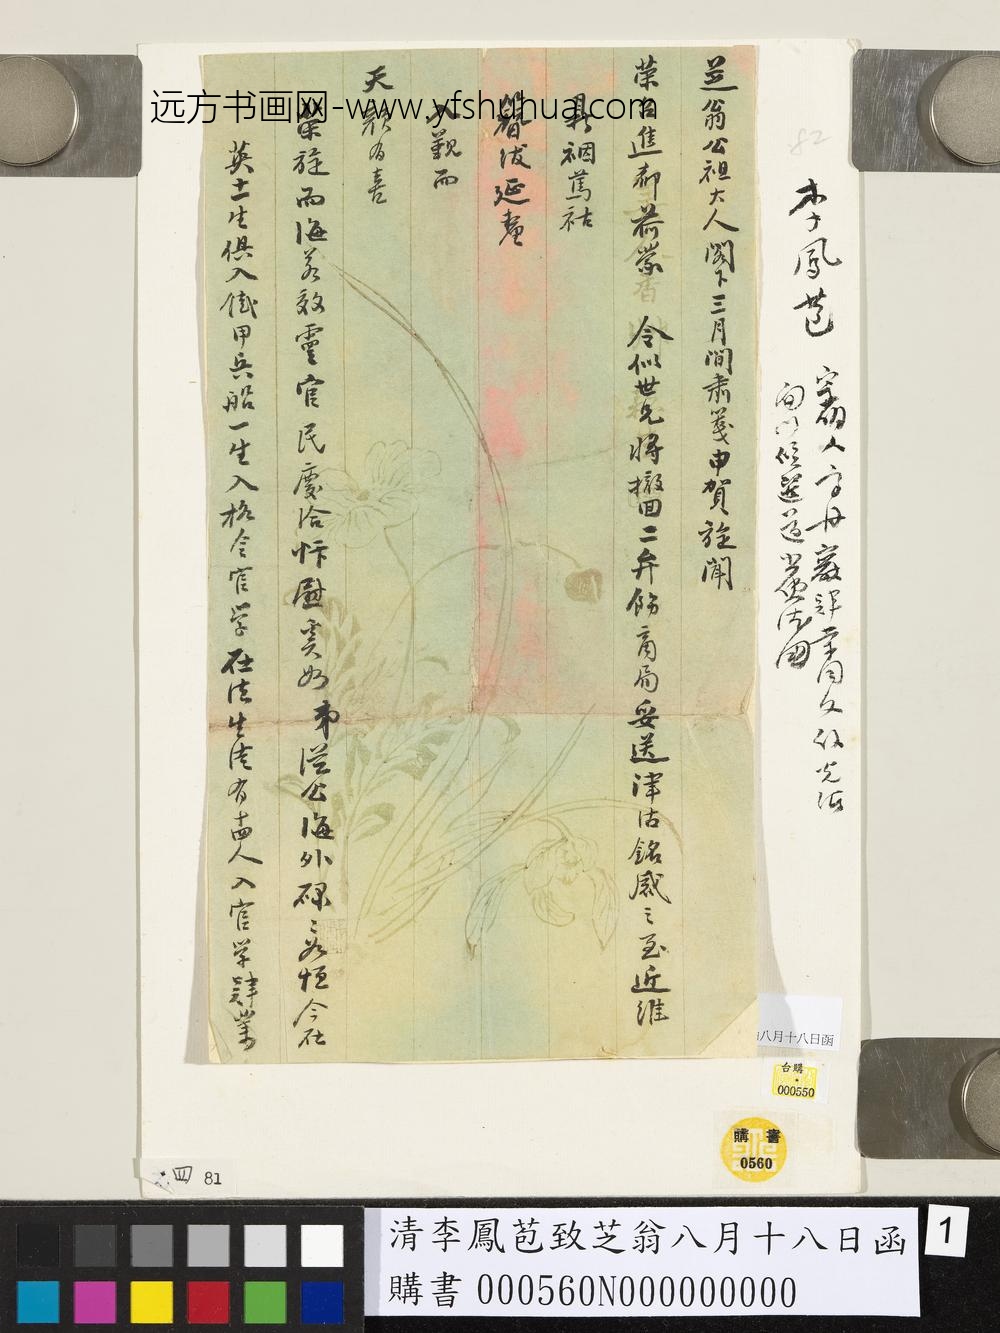 远方书画网-www.yfshuhua.com
芝翁公祖大人閣下三月間肅箋申賀旋聞
榮台進都荷蒙 令似世兄將撤回二弁飭商局妥送津沽銘感之至近維
鼎祺篤祜
聲淩延釐
入覲而
天顏有喜
榮旋而海若效靈官民慶洽忭慰奚如弟從公海外碌碌如恒今在
英士生俱入鐵甲兵船一生入格令官學在法生徒有十四人入官學肄業
李鳳苞
82
八月十八日函
台購
000550
購書
0560
四 81
清李鳳苞致芝翁八月十八日函
購書 000560N000000000
1